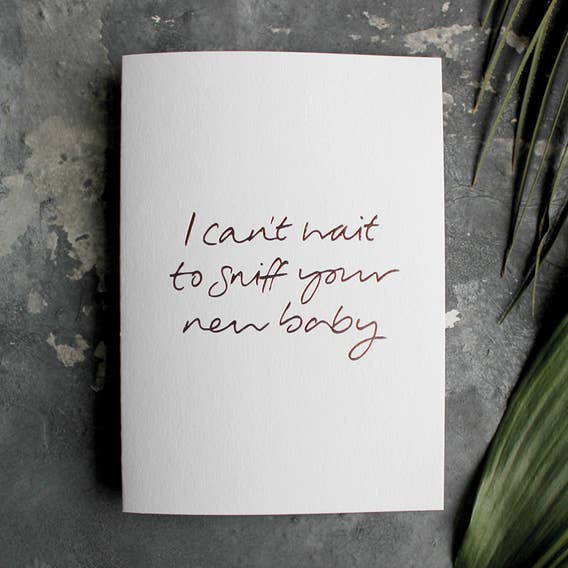 I can't wait
to sniff your
new baby